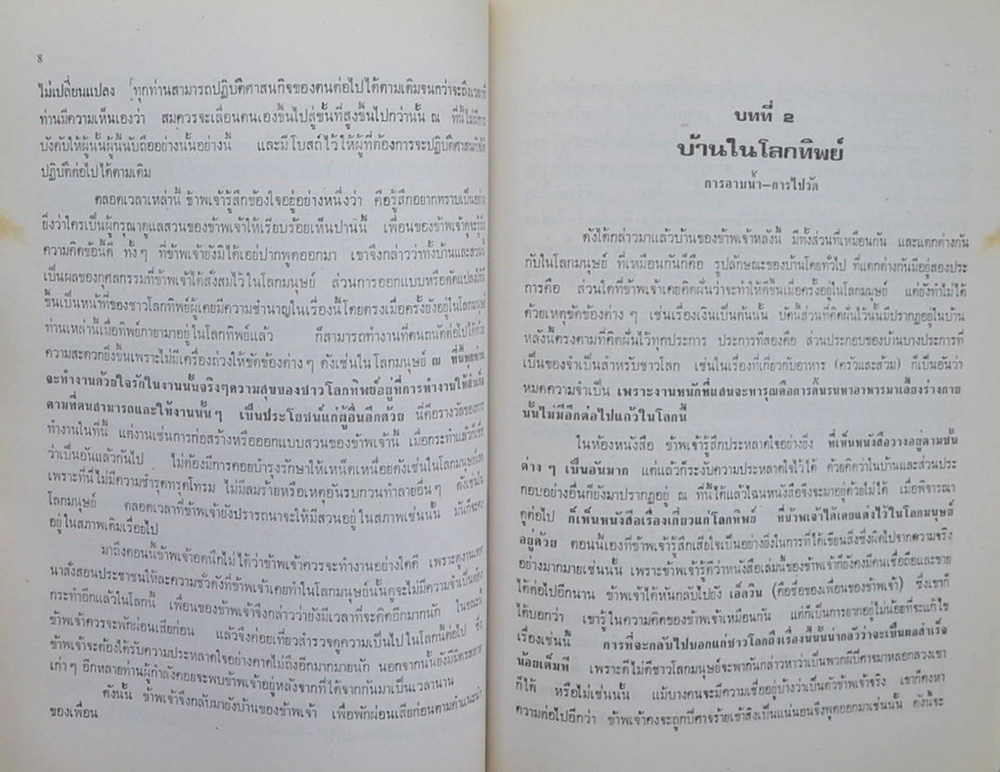 8
ไม่เปลี่ยนแปลง ทุกท่านสามารถปฏิบัติศาสนกิจของตนต่อไปได้ตามเดิมจนกว่าจะถึงเวลาที่
ท่านมีความเห็นเองว่า สมควรจะเลื่อนตนเองขึ้นไปสู่ขั้นที่สูงขึ้นไปกว่านั้น ณ ที่นี้ไม่มีการ
บังคับให้ผู้นั้นผู้นี้นับถืออย่างนั้นอย่างนี้ และมีโบสถ์ไว้ให้ผู้ที่ต้องการจะปฏิบัติศาสนกิจได้
ปฏิบัติต่อไปได้ตามเดิม
ตลอดเวลาเหล่านี้ ข้าพเจ้ารู้สึกข้องใจอยู่อย่างหนึ่งว่า คือรู้สึกอยากทราบเป็นอย่าง
ยิ่งว่าใครเป็นผู้กรุณาดูแลสวนของข้าพเจ้าให้เรียบร้อยเห็นปานนี้ เพื่อนของข้าพเจ้าดูจะรู้
ความคิดข้อนี้ดี ทั้ง ๆ ที่ข้าพเจ้ายังมิได้เอ่ยปากพูดออกมา เขาจึงกล่าวว่าทั้งบ้านและสวนนี้
เป็นผลของกุศลกรรมที่ข้าพเจ้าได้สั่งสมไว้ในโลกมนุษย์ ส่วนการออกแบบหรือดัดแปลงให้ดี
ขึ้นเป็นหน้าที่ของชาวโลกทิพย์ผู้เคยมีความชำนาญในเรื่องนี้โดยตรงเมื่อครั้งยังอยู่ในโลกมนุษย์
ท่านเหล่านี้เมื่อทิพย์กายามาอยู่ในโลกทิพย์แล้ว ก็สามารถทำงานที่ตนถนัดต่อไปได้ด้วย
ความสะดวกยิ่งขึ้นเพราะไม่มีเครื่องถ่วงให้ขัดข้องต่าง ๆ ดังเช่นในโลกมนุษย์ ณ ที่นี้ทุกท่าน
จะทำงานด้วยใจรักในงานนั้นจริงๆความสุขของชาวโลกทิพย์อยู่ที่การทำงานให้สำเร็จ
ตามที่ตนสามารถและให้งานนั้นๆ เป็นประโยชน์แก่ผู้อื่นอีกด้วย นี่คือรางวัลของการ
ทำงานในที่นี้ แต่งานเช่นการก่อสร้างหรือออกแบบสวนของข้าพเจ้านี้ เมื่อกระทำแล้วก็เป็น
ว่าเป็นอันแล้วกันไป ไม่ต้องมีการคอยบำรุงรักษาให้เหน็ดเหนื่อยดังเช่นในโลกมนุษย์
เพราะที่นี้ไม่มีความชำรุดทรุดโทรม ไม่มีลมร้ายหรือเหตุอันรบกวนทำลายอื่นๆ ดังเช่นใน
โลกมนุษย์ ตลอดเวลาที่ข้าพเจ้ายังปรารถนาจะให้มีสวนอยู่ในสภาพเช่นนั้น มันก็จะคง
อยู่ในสภาพเดิมเรื่อยไป
มาถึงตอนนี้ข้าพเจ้าอดนึกไม่ได้ว่าข้าพเจ้าควรจะทำงานอย่างใดดี เพราะดูงานเทศ
นาสั่งสอนประชาชนให้ละความชั่วดังที่ข้าพเจ้าเคยทำในโลกมนุษย์อันนั้นดูจะไม่มีความจำเป็นต้อง
กระทำอีกแล้วในโลกนี้ เพื่อนของข้าพเจ้าจึงกล่าวว่ายังมีเวลาที่จะคิดอีกมากนัก ในขณะนี้
ข้าพเจ้าควรจะพักผ่อนเสียก่อน แล้วจึงค่อยเที่ยวสำรวจดูความเป็นไปในโลกนี้ต่อไป ซึ่ง
ข้าพเจ้าจะต้องได้รับความประหลาดใจอย่างคาดไม่ถึงอีกมากมายนัก นอกจากนั้นยังมีมิตรสหาย
เก่าๆ อีกหลายท่านผู้กำลังคอยจะพบข้าพเจ้าอยู่หลังจากที่ได้จากกันมาเป็นเวลานาน
ดังนั้น ข้าพเจ้าจึงกลับมายังบ้านของข้าพเจ้า เพื่อพักผ่อนเสียก่อนตามคำแนะนำ
ของเพื่อน
บทที่ ๒
บ้านในโลกทิพย์
การอาบน้ำ—การไปวัด
ดังได้กล่าวมาแล้วบ้านของข้าพเจ้าหลังนี้ มีทั้งส่วนที่เหมือนกัน และแตกต่างกัน
กับในโลกมนุษย์ ที่เหมือนกันก็คือ รูปลักษณะของบ้านโดยทั่วไป ที่แตกต่างกันมีอยู่สองประ
การคือ ส่วนใดที่ข้าพเจ้าเคยคิดฝันว่าจะทำให้ดีขึ้นเมื่อครั้งอยู่ในโลกมนุษย์ แต่ยังทำไม่ได้
ด้วยเหตุขัดข้องต่าง ๆ เช่นเรื่องเงินเป็นต้นนั้น บัดนี้ส่วนที่คิดฝันไว้นั้นมีปรากฏอยู่ในบ้าน
หลังนี้ตรงตามที่คิดฝันไว้ทุกประการ ประการที่สองคือ ส่วนประกอบของบ้านบางประการที่
เป็นของจำเป็นสำหรับชาวโลก เช่นในเรื่องที่เกี่ยวกับอาหาร (ครัวและส้วม) ก็เป็นอันว่า
หมดความจำเป็น เพราะงานหนักที่แสนจะทารุณคือการดิ้นรนหาอาหารมาเลี้ยงร่างกาย
นั้นไม่มีอีกต่อไปแล้วในโลกนี้
ในห้องหนังสือ ข้าพเจ้ารู้สึกประหลาดใจอย่างยิ่ง ที่เห็นหนังสือวางอยู่ตามชั้น
ต่าง ๆ เป็นอันมาก แต่แล้วก็ระงับความประหลาดใจไว้ได้ ด้วยคิดว่าในบ้านและส่วนประ
กอบอย่างอื่นก็ยังมาปรากฏอยู่ ณ ที่นี้ได้แล้วไฉนหนังสือจึงจะมาอยู่ด้วยไม่ได้ เมื่อพิจารณา
ดูต่อไป ก็เห็นหนังสือเรื่องเกี่ยวแก่โลกทิพย์ ที่ข้าพเจ้าได้เคยแต่งไว้ในโลกมนุษย์
อยู่ด้วย ตอนนี้เองที่ข้าพเจ้ารู้สึกเสียใจเป็นอย่างยิ่งในการที่ได้เขียนสิ่งซึ่งผิดไปจากความจริง
อย่างมากมายเช่นนั้น เพราะข้าพเจ้ารู้ดีว่าหนังสือเล่มนี้ของข้าพเจ้าก็ยังคงมีคนเชื่อถือและขาย
ได้ต่อไปอีกนาน ข้าพเจ้าได้หันกลับไปยัง เอ็ดวิน (คือชื่อของเพื่อนของข้าพเจ้า) ซึ่งเขาก็
ได้บอกว่า เขารู้ในความคิดของข้าพเจ้าเหมือนกัน แต่ก็เป็นการยากอยู่ไม่น้อยที่จะแก้ไข
เรื่องเช่นนี้ การที่จะกลับไปบอกแก่ชาวโลกถึงเรื่องนี้นั้นน่ากลัวว่าจะเป็นผลสำเร็จ
น้อยเต็มที เพราะดีไม่ดีชาวโลกมนุษย์จะพากันกล่าวหาว่าเป็นพวกผีปีศาจมาหลอกลวงเขา
ก็ได้ หรือไม่เช่นนั้น แม้บางคนจะมีความเชื่ออยู่บ้างว่าเป็นตัวข้าพเจ้าจริง เขาก็คงหา
ความต่อไปอีกว่า ข้าพเจ้าคงจะถูกปีศาจร้ายเข้าสิงเป็นแน่นอนจึงพูดออกมาเช่นนั้น ดังนี้จะ